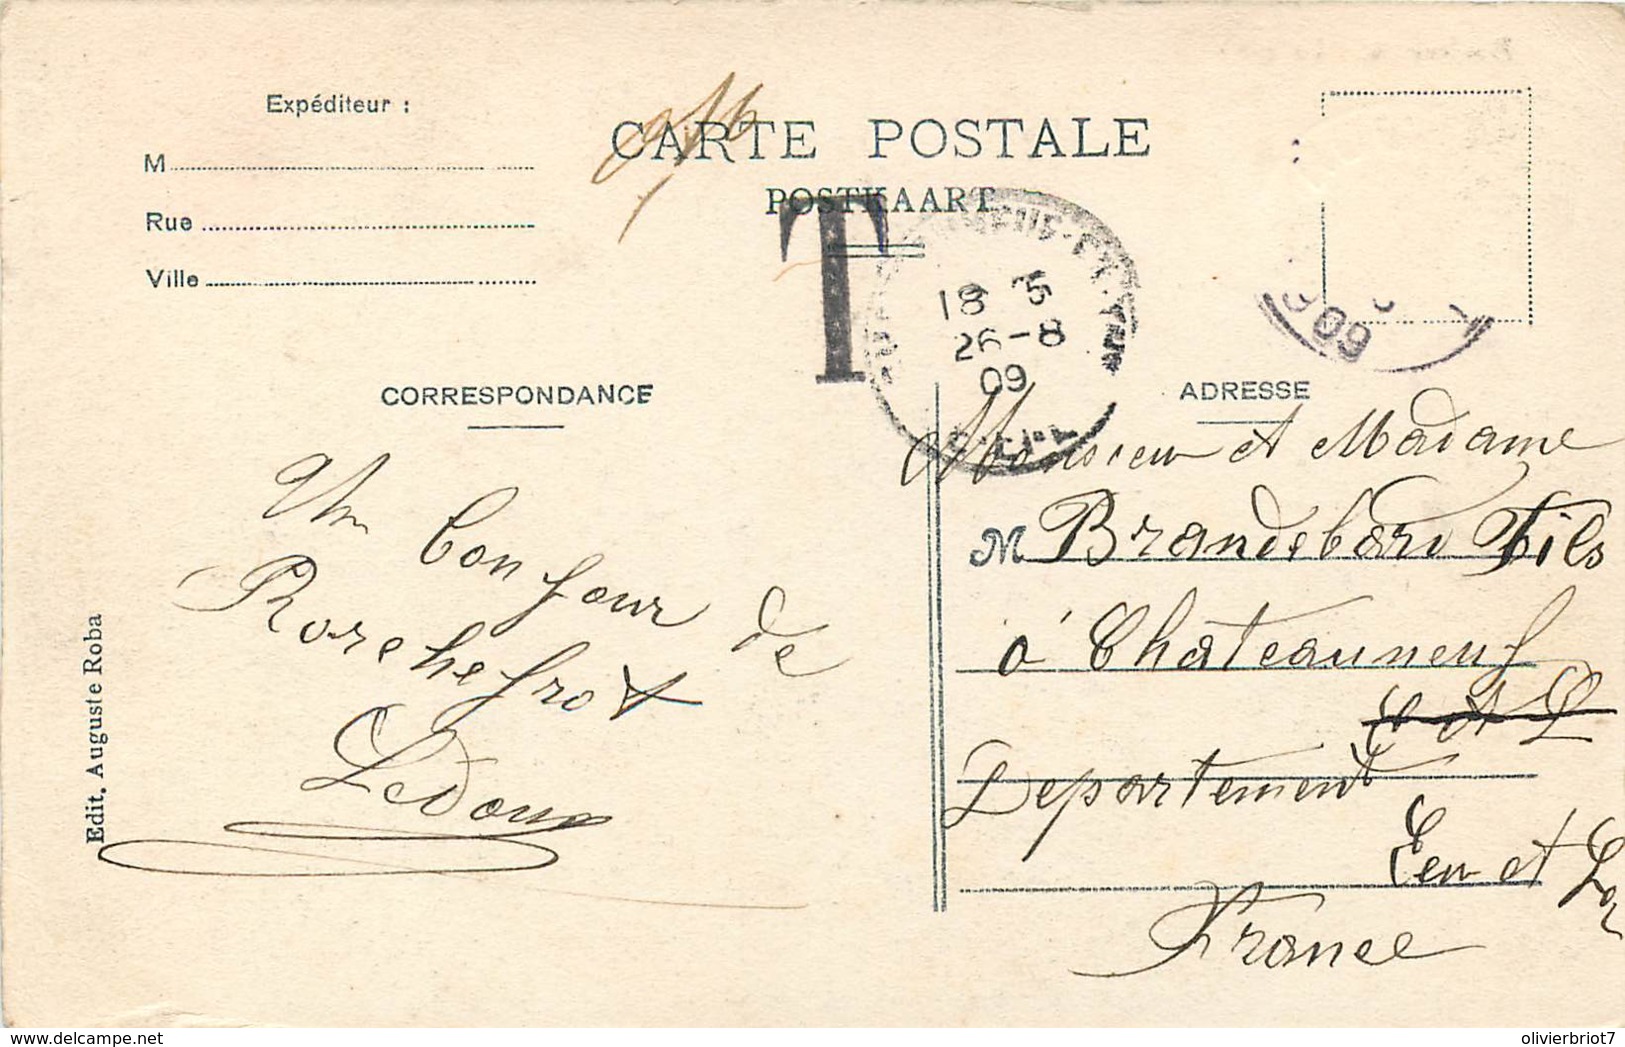 Expéditeur :
M
Rue
Ville
CARTE POSTALE
POSTKAART
T
18 5
26-8
09
909
CORRESPONDANCE
ADRESSE
Un bonjour de
Rorchefrot
Ledoux
Monsieur et Madame
M Brandebard Fils
à Châteauneuf
Departement
Eeu et Loi
France
Edit. Auguste Roba
delcampe.net
olivierbriot7